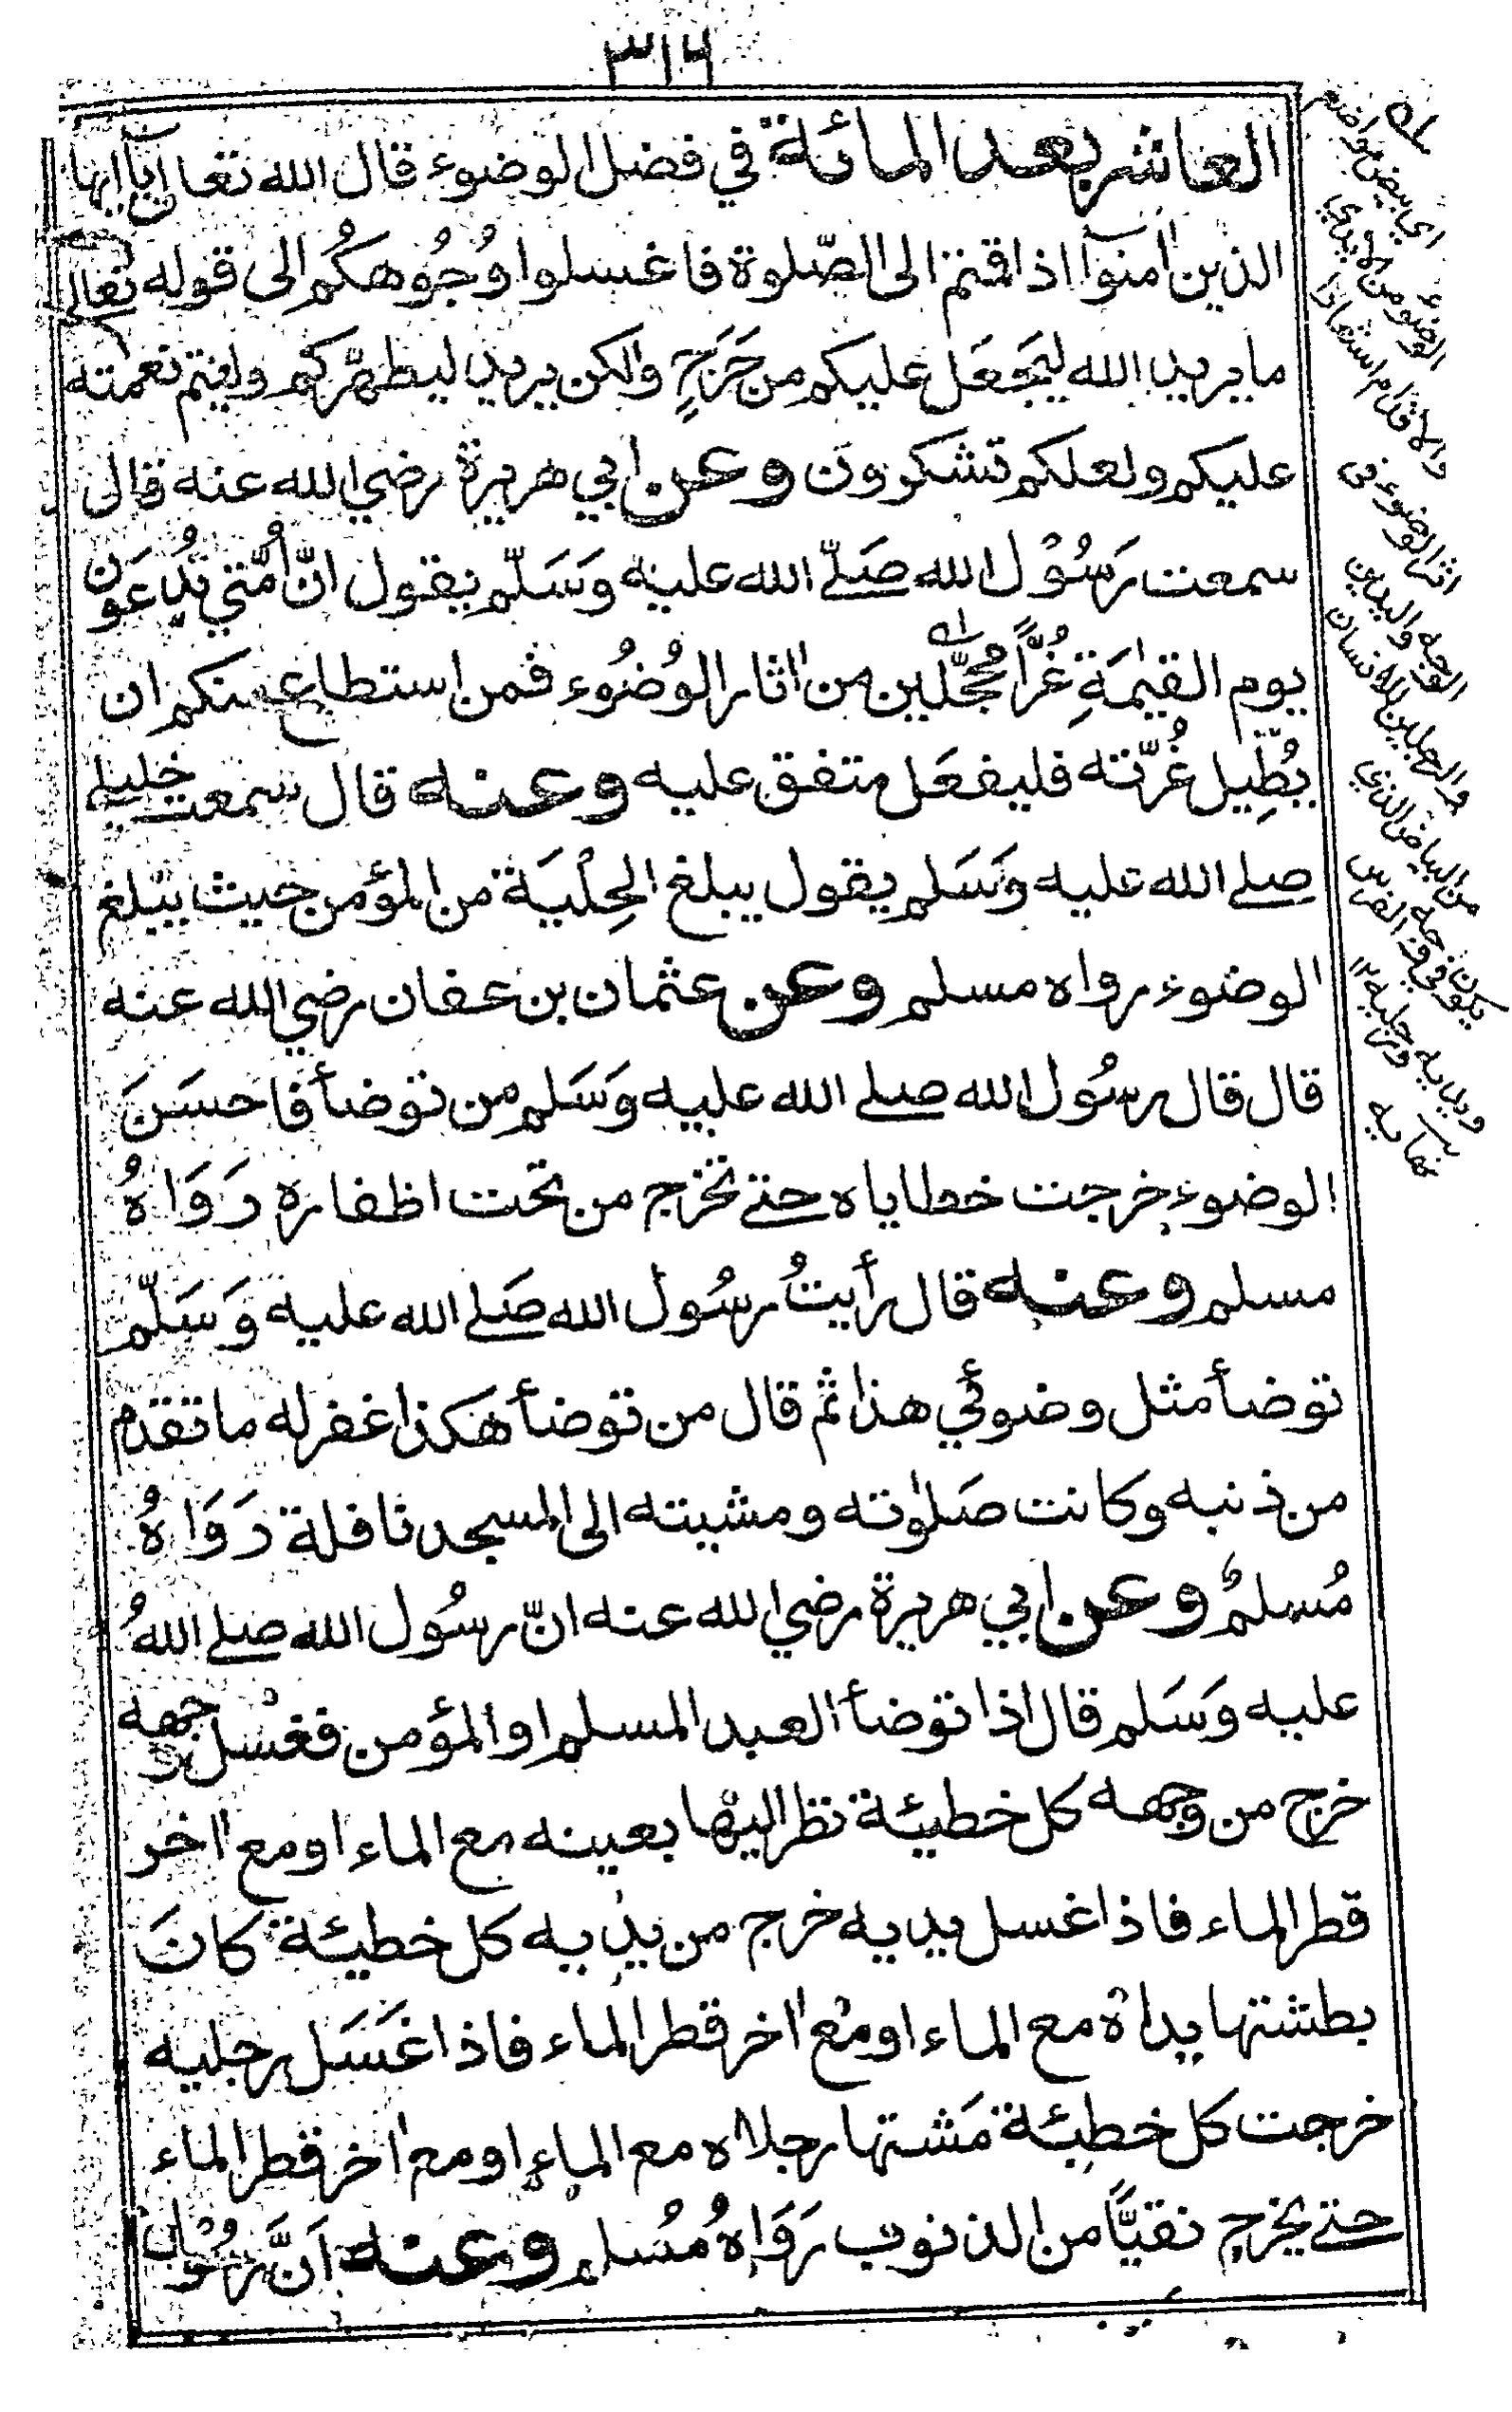 ٣١٦
العاشر بعد المائة في فضل الوضوء قال الله تعالى يآايها
الذين اٰمنوآ اذا قمتم الى الصّلوة فاغسلوا وُجُوهكُم الى قوله تعالى
ما يريد الله ليَجعَل عليكم من حَرَجٍ ولكن يريد ليطهّركم وليتم نعمته
عليكم ولعلكم تشكرون وعن ابي هريرة رضي الله عنه قال
سمعت رَسُوْل الله صَلّے الله عليه وَسَلّم يقول انّ اُمّتي يُدعَون
يوم القيٰمَةِ غُرًّا مُحَجَّلين من اٰثار الوُضُوء فمن استطاع منكم ان
يُطِيل غُرّته فليفعَل متفق عليه وعنه قال سمعت خليلے
صلے الله عليه وَسَلم يقول يبلغ الحِلْيَة من المؤمن حيث يبلغ
الوضوء رواه مسلم وعن عثمان بن عفان رضي الله عنه
قال قال رسُول الله صلے الله عليه وَسَلم من توضأ فاحسَنَ
الوضوء خرجت خطاياه حتے تخرج من تحت اظفاره رَوَاهُ
مسلم وعنه قال رأيتُ رسُول الله صَلے الله عليه وَسَلّم
توضأ مثل وضوئي هذا ثم قال من توضأ هكذا غفر له ما تقدم
من ذنبه وكانت صَلٰوته ومشيته الى المسجد نافلة رَوَاهُ
مُسلمٌ وعن ابي هريرة رضي الله عنه انّ رسُول الله صلے اللهُ
عليه وَسَلم قال اذا توضأ العبد المسلم او المؤمن فغسْل وجهه
خرج من وجهه كل خطيئة نظر اليْها بعينه مع الماء او مع اٰخر
قطر الماء فاذا غسل يديه خرج من يديه كل خطيئة كانَ
بطشتها يداه مع الماء او مع اٰخر قطر الماء فاذا غَسَل رجليه
خرجت كل خطيئة مَشتها رجلاه مع الماء او مع اٰخر قطر الماء
حتے يخرج نقيًّا من الذنوب رَوَاهُ مُسْلم وعنه اَنَّ رسُول
اى بيض مواضع
الوضوء من الايدي
والاقدام استعار
اثر الوضوء فى
الوجه واليدين
والرجلين للانسان
من البياض الذي
يكون في وجه الفرس
ويديه ورجليه ١٢
نهايه